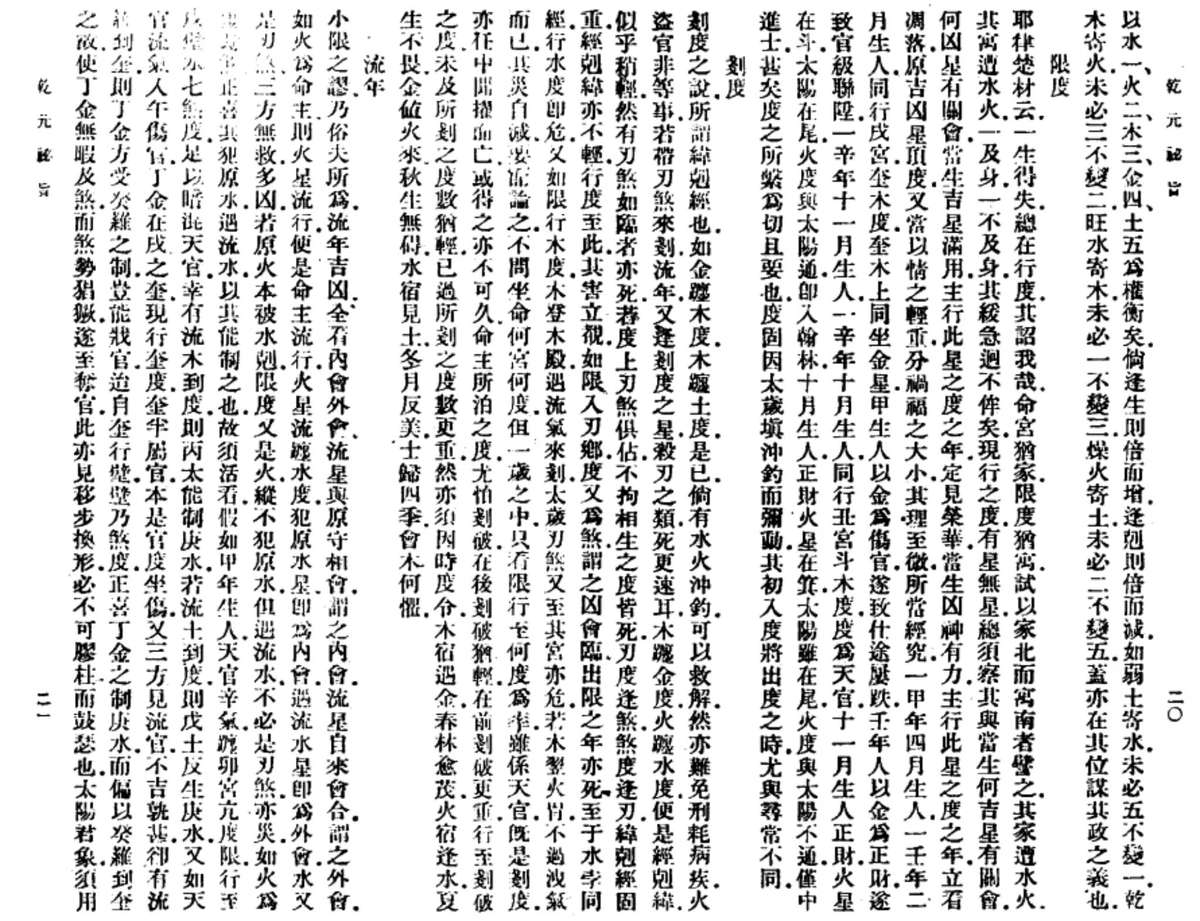 乾元祕旨
二〇
以水一、火二、木三、金四、土五、爲權衡矣。倘逢生則倍而增。逢剋則倍而減。如弱土寄水。未必五不變一。乾
木寄火。未必三不變二。旺水寄木。未必一不變三。燥火寄土。未必二不變五。蓋亦在其位謀其政之義也。
限度
耶律楚材云。一生得失。總在行度。其詔我哉。命宮猶家。限度猶寓。試以家北而寓南者譬之。其家遭水火。
其寓遭水火。一及身。一不及身。其緩急迥不侔矣。現行之度。有星無星。總須察其與當生何吉星有關會。
何凶星有關會。當生吉星滿用。主行此星之度之年。定見榮華。當生凶神有力。主行此星之度之年。立看
凋落。原吉凶星頂度。又當以情之輕重。分禍福之大小。其理至微。所當經究。一甲年四月生人。一壬年二
月生人。同行戌宮奎木度。奎木上同坐金星。甲生人以金爲傷官。遂致仕途屢跌。壬年人以金爲正財。遂
致官級聯陞。一辛年十一月生人。一辛年十月生人。同行丑宮斗木度。度爲天官。十一月生人。正財火星
在斗。太陽在尾火度。與太陽通。卽入翰林。十月生人。正財火星在箕。太陽雖在尾火度。與太陽不通。僅中
進士。甚矣度之所繫。爲切且要也。度固因太歲塡沖釣而彌動。其初入度將出度之時。尤與尋常不同。
剗度
剗度之說。所謂緯剋經也。如金躔木度。木躔土度是已。倘有水火沖釣。可以救解。然亦難免刑耗病疾。火
盜官非等事。若帶刃煞來剗。流年又逢剗度之星。殺刃之類。死更速耳。木躔金度。火躔水度。便是經剋緯。
似乎稍輕。然有刃煞如臨者亦死。若度上刃煞俱佔。不拘相生之度皆死。刃度逢煞。煞度逢刃。緯剋經固
重。經剋緯亦不輕。行度至此。其害立覩。如限入刃鄉。度又爲煞。謂之凶會。臨出限之年亦死。至于水孛同
經。行水度卽危。又如限行木度。木登木殿。遇流氣來剗。太歲刃煞又至其宮亦危。若木嬖火胃。不過洩氣
而已。其災自減。要而論之。不問坐命何宮何度。但一歲之中。只看限行至何度爲準。雖係天官。旣是剗度。
亦任中聞擢而亡。或得之亦不可久。命主所泊之度。尤怕剗破。在後剗破猶輕。在前剗破更重。行至剗破
之度。未及所剗之度數猶輕。已過所剗之度數更重。然亦須因時度令。木宿遇金。春林愈茂。火宿逢水。夏
生不畏。金値火來。秋生無碍。水宿見土。冬月反美。土歸四季。會木何懼。
流年
小限之謬。乃俗夫所爲。流年吉凶。全看內會外會。流星與原守相會。謂之內會。流星自來會合。謂之外會。
如火爲命主。則火星流行。便是命主流行。火星流躔水度。犯原水星。卽爲內會。遇流水星。卽爲外會。水又
是刃煞。三方無救多凶。若原火本破水剋。限度又是火。縱不犯原水。但遇流水。不必是刃煞亦災。如火爲
正喜其犯原水遇流水。以其能制之也。故須活看。假如甲年生人。天官辛氣。躔卯宮亢度。限行至
水七煞度。足以暗混天官。幸有流木到度。則丙太能制庚水。若流土到度。則戊土反生庚水。又如天
官流氣入午傷官。丁金在戌之奎。現行奎度。奎半屬官。本是官度坐傷。又三方見流官。不吉孰甚。卻有流
到奎。則丁金方受癸羅之制。豈能戕官。迨自奎行壁。壁乃煞度。正喜丁金之制庚水。而偏以癸羅到奎
之故。使丁金無暇及煞。而煞勢猖獗。遂至奪官。此亦見移步換形。必不可膠柱而鼓瑟也。太陽君象。須用
乾元祕旨
二一